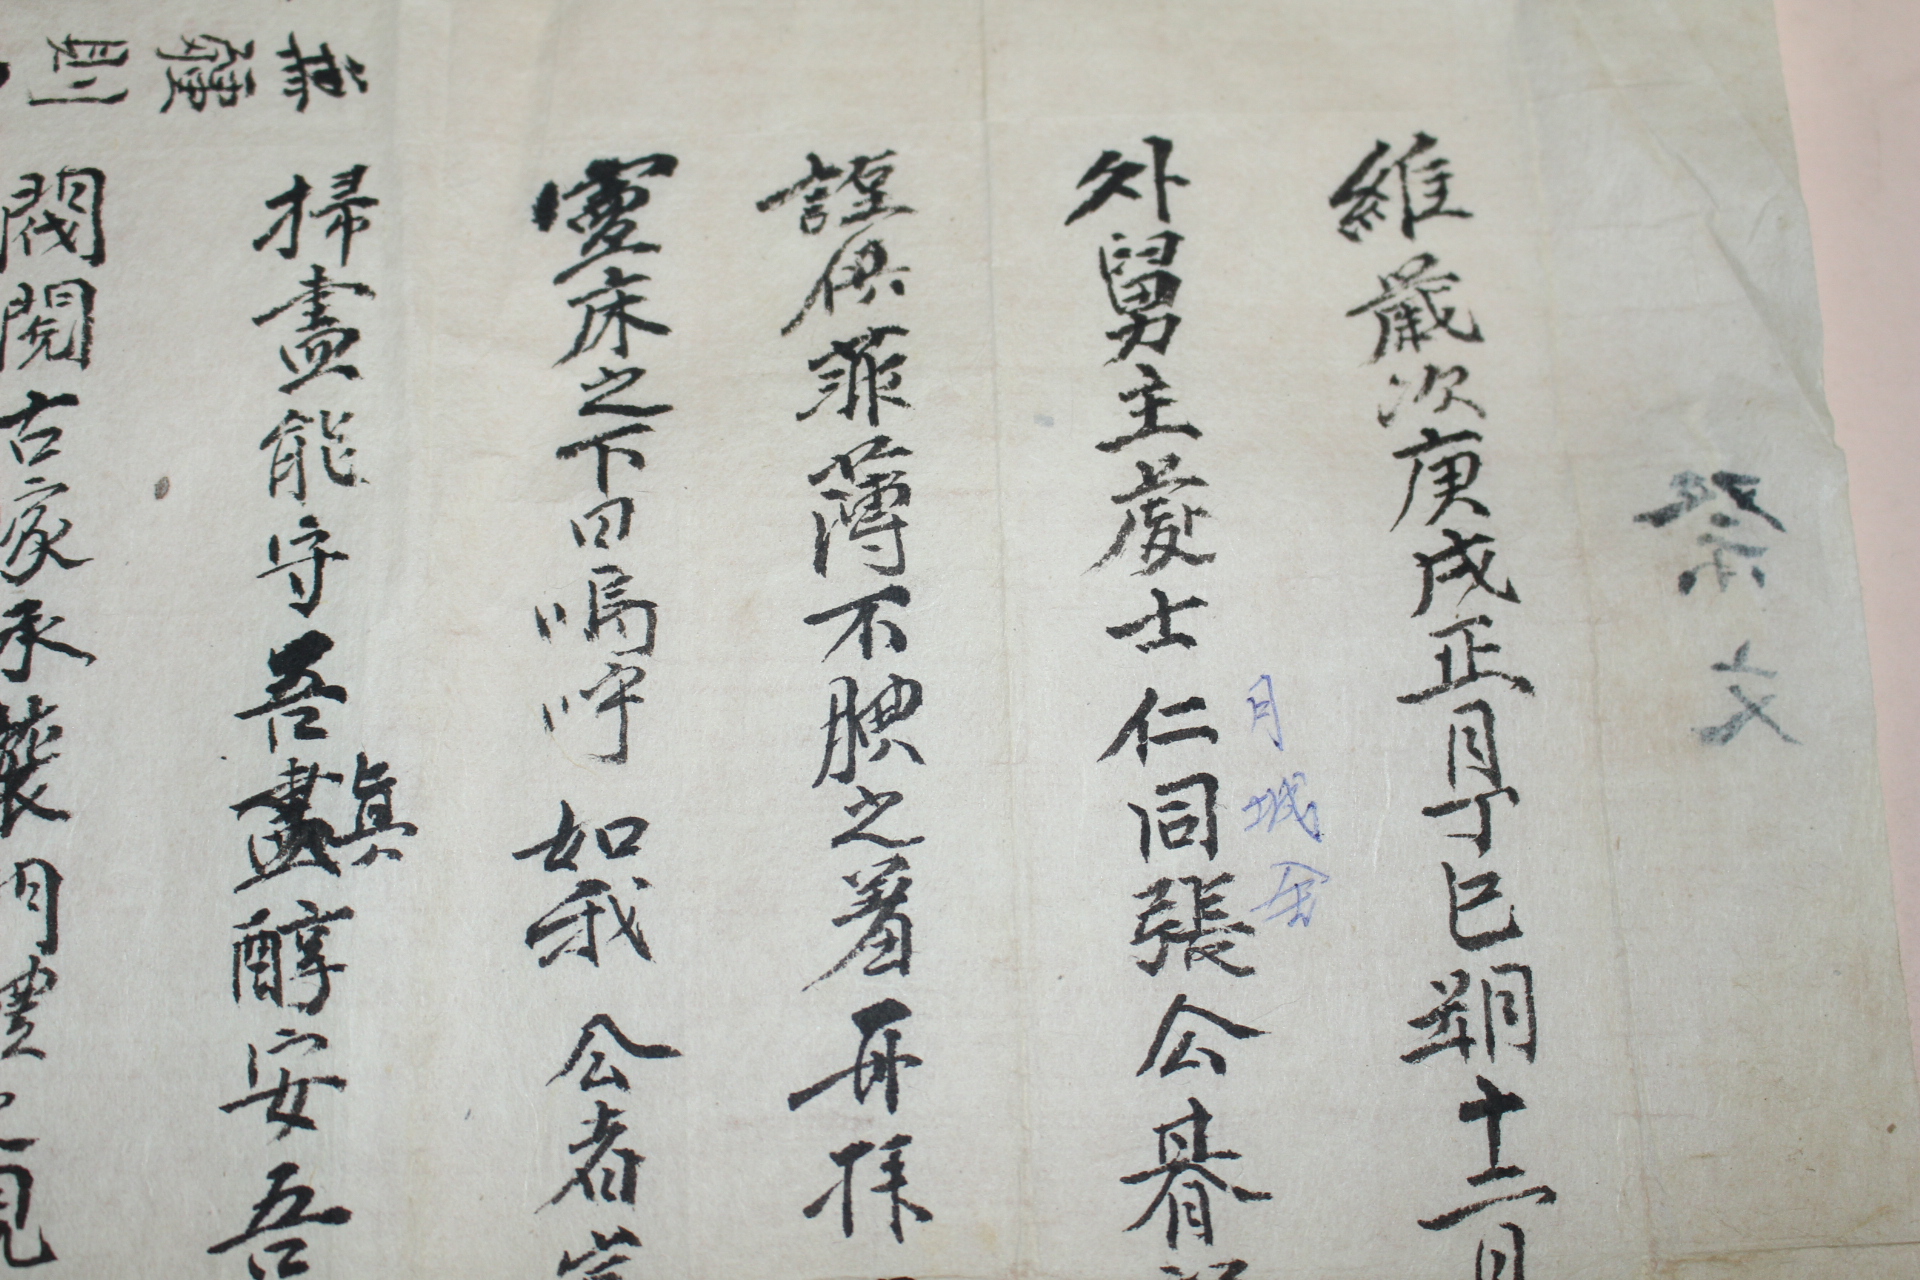 祭文
維歲次庚戌正月丁巳朔十二日
月城金
外舅主處士仁同張公朞
謹供菲薄不腆之羞再拜
靈床之下曰嗚呼如我公者
掃盡能守吾眞
醇安吾
閥閱古家承襲
則